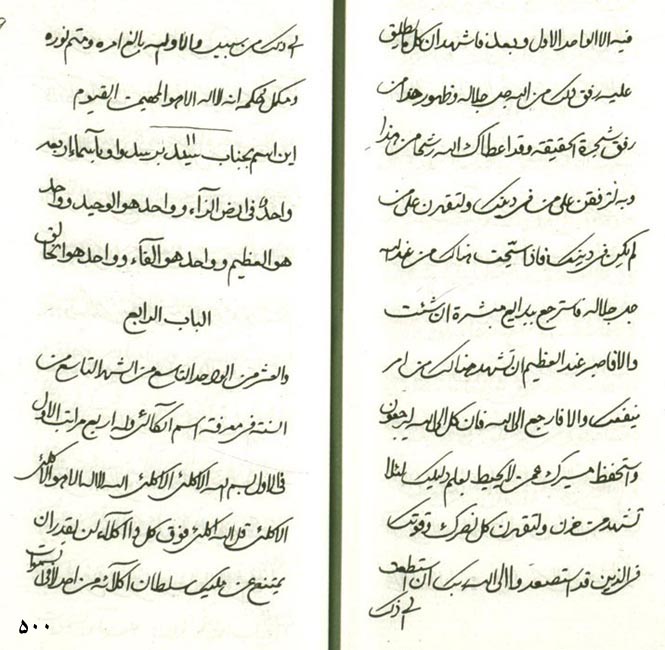 فیه الا الواحد الاول و بعد فاشهد ان کل ما یطلق
علیه رفق ذلک من الله جل جلاله و ظهور هذا من
رفق شجرة الحقیقة و قد اعطاک الله رشحا من هذا
و به لترفقن علی من فی دینک و لتقهرن علی من
لم یکن فی دینک فاذا هناک من عند الله
جل جلاله فاسترجع ببدایع مبشرة ان شئت
والا فاصبر عند العظیم ان تشهد هنالک من امر
نفسک والا فارجع الی الله فان کل الی الله لیرجعون
و استحفظ سرک عمن لا یحیط بعلم دلیلک لئلا
تشهد من حزن و لتقهرن کل نصرک و قوتک
فی الذین قد الی الله ربک ان استطعت
الی ذلک
الی ذلک من سبیل والا والله بالغ امره و متم نوره
و مکمل حکمه انه لا اله الا هو المهیمن القیوم
این اسم بجناب سید برسد و او باسماء اربعه
واحد فی ارض الزاء و واحد هو الوحید و واحد
هو العظیم و واحد هو الفاء و واحد هو الخالق
الباب الرابع
والعشر من الواحد التاسع من الشهر التاسع من
السنة فی معرفة اسم الکالئ وله اربع مراتب الاول
فی الاول بسم الله الاکلئ الاکلئ الله لا اله الا هو الاکلئ
الاکلئ قل الله اکلئ فوق کل ذا اکلاء لن یقدر ان
یمتنع عن ملیک سلطان اکلائه من احد لا فی السموات
۵۰۰